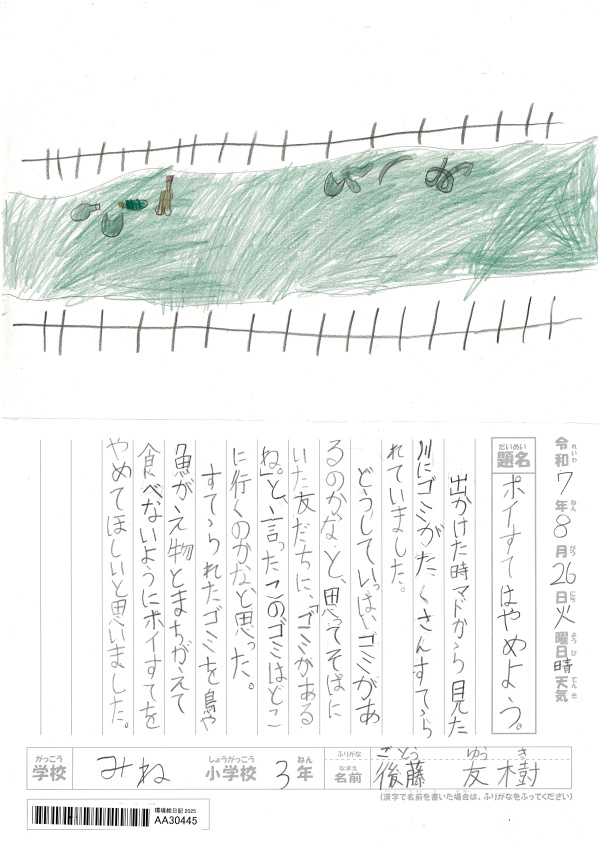 令和7年8月26日火曜日晴天気
れいわ ねん がつ にち ようび てんき
題名 ポイすてはやめよう。
だいめい
出かけた時マドから見た
川にゴミがたくさんすてら
れていました。
どうしていっぱいゴミがあ
るのかな、と、思ってそばに
いた友だちに、「ゴミがある
ね。」と、言ったこのゴミはどこ
に行くのかなと思った。
すてられたゴミを鳥や
魚がえ物とまちがえて
食べないようにポイすてを
やめてほしいと思いました。
がっこう しょうがっこう ねん
学校 みね 小学校 3年
ふりがな ごとう ゆうき
なまえ
名前 後藤 友樹
(漢字で名前を書いた場合は、ふりがなをふってください)
環境絵日記 2025
AA30445